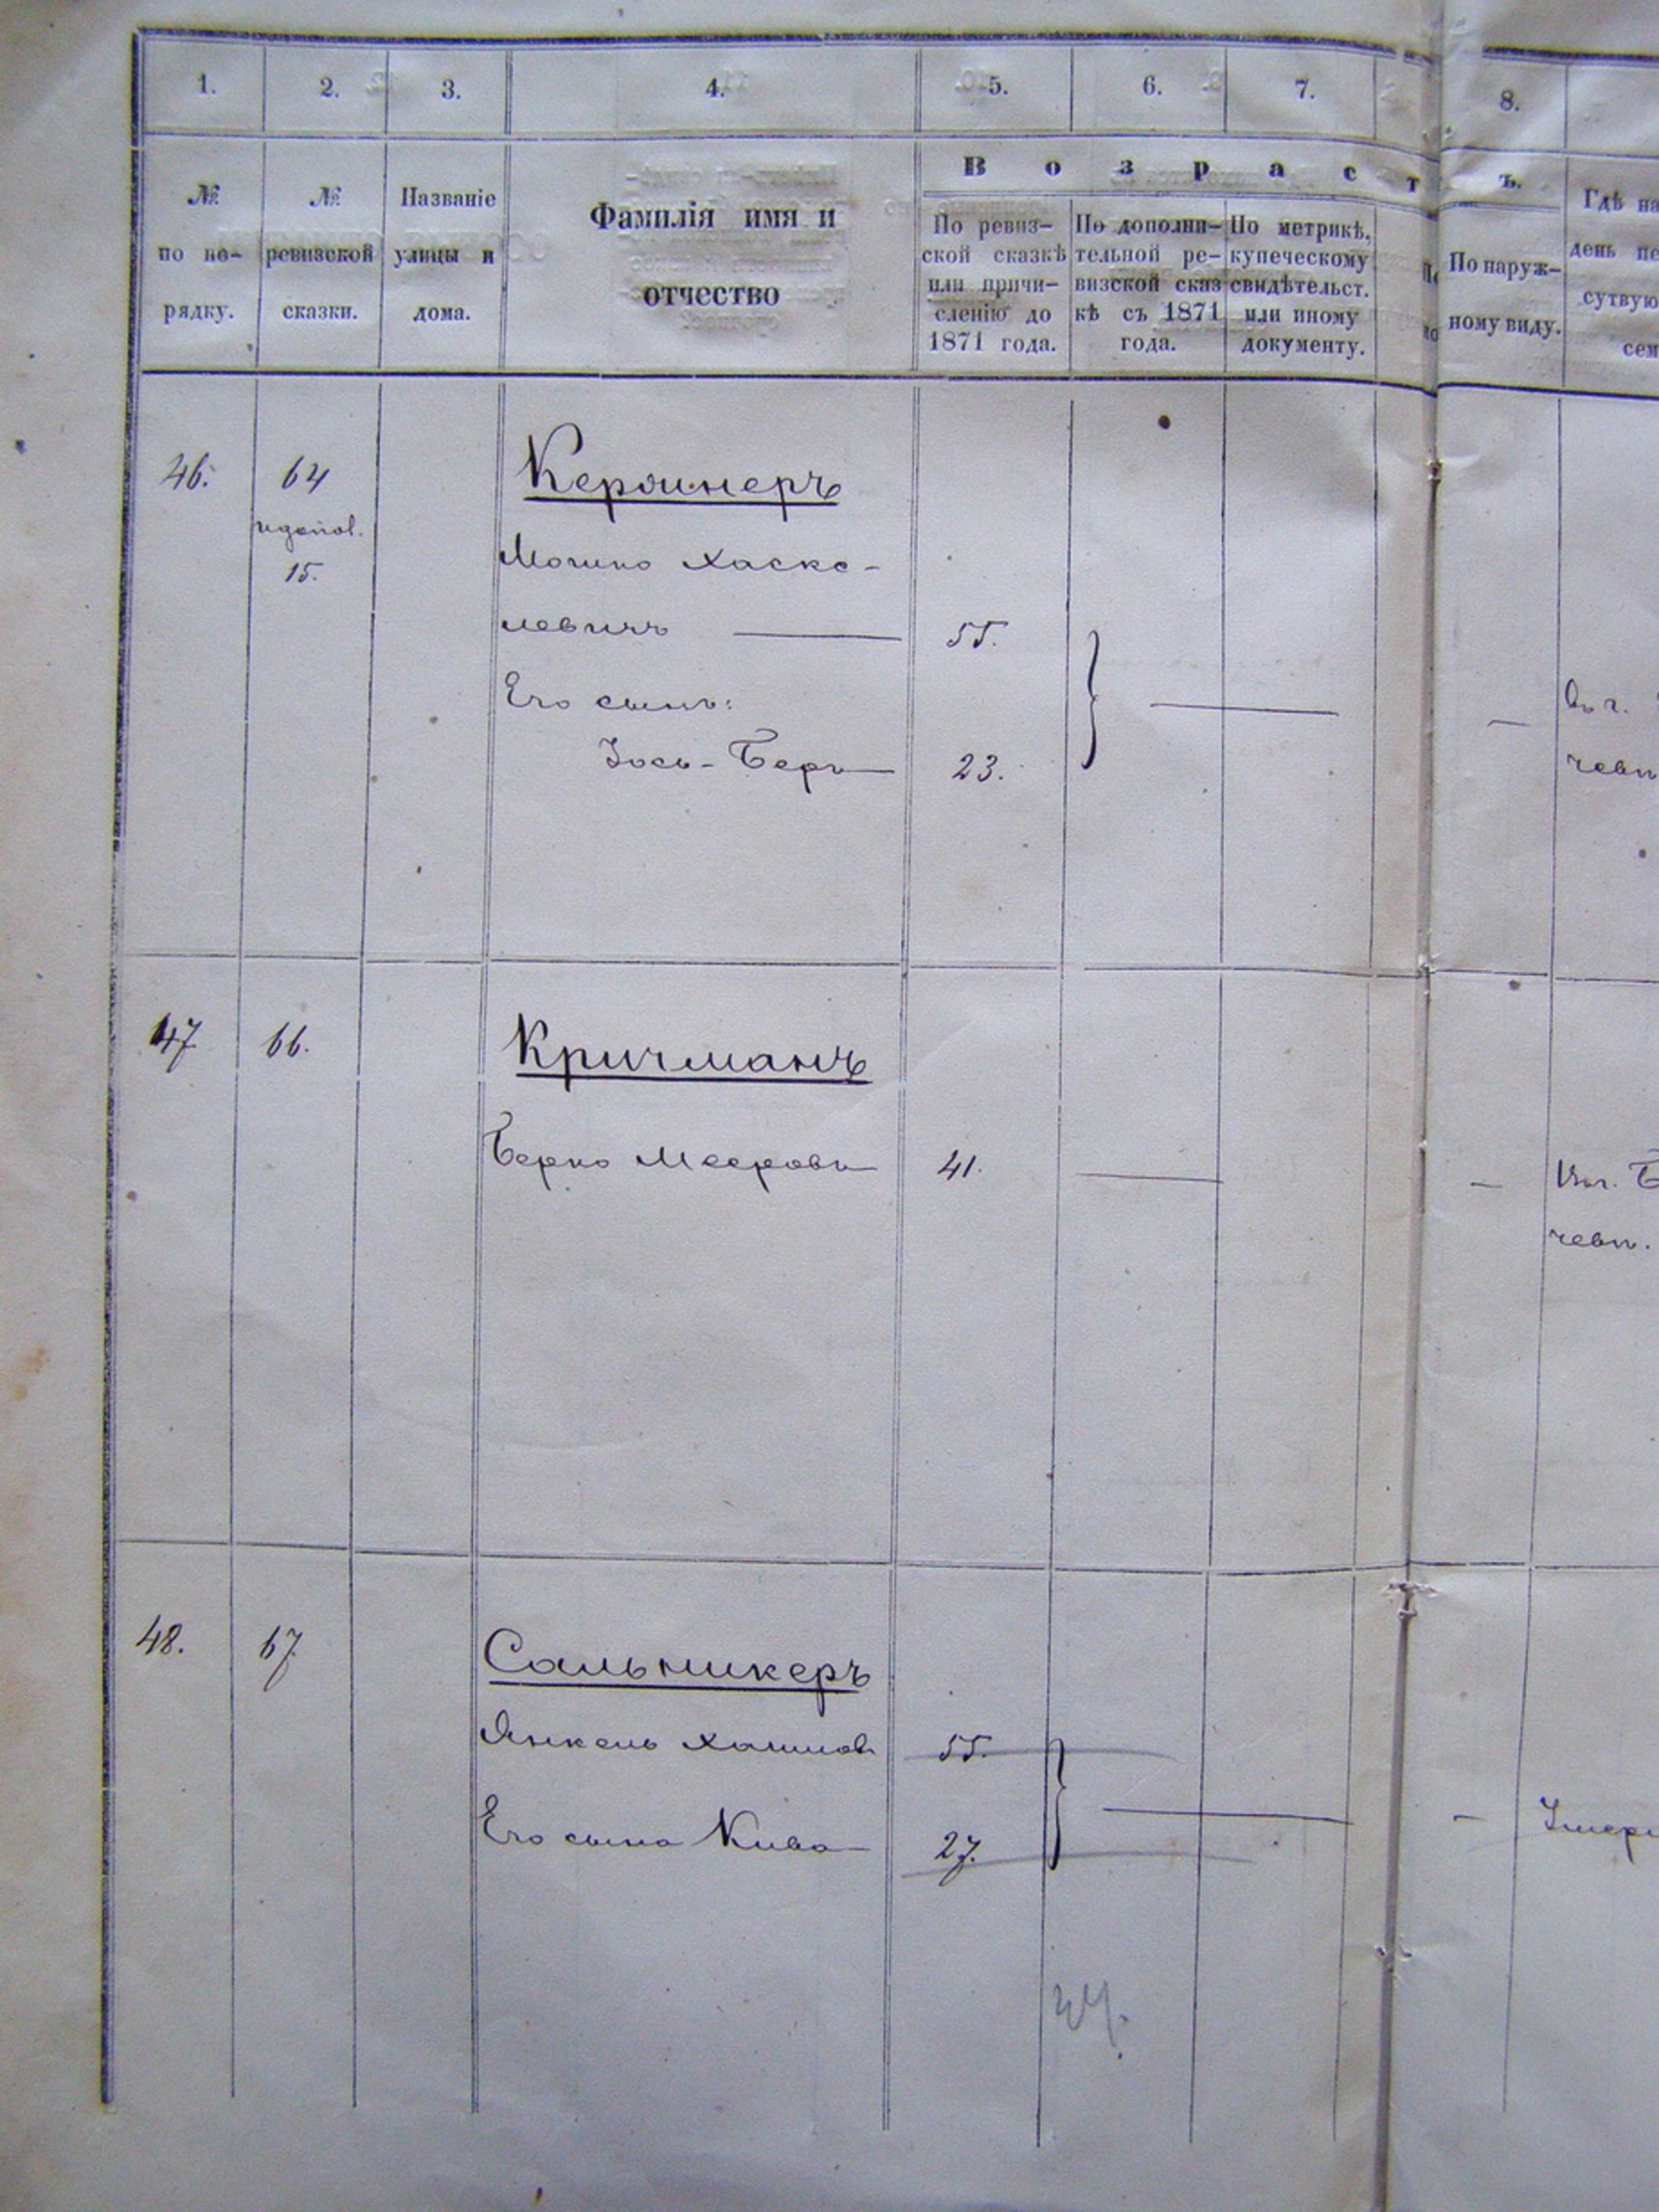 1. 2. 3. 4. 5. 6. 7. 8.
Возрастъ.
№ по порядку.
№ ревизской сказки.
Названіе улицы и дома.
Фамилія имя и отчество
По ревиз-
ской сказкѣ
или причи-
сленію до
1871 года.
По дополни-
тельной ре-
визской сказ
кѣ съ 1871
года.
По метрикѣ,
купеческому
свидѣтельст.
или иному
документу.
По наруж-
ному виду.
Гдѣ на
день пе
сутвую
сем
46. 64
и допол.
15.
Мошко Хаске-
левичъ 55.
Его сынъ:
Іось-Беръ 23.
чевѣ
47 66. Кричманъ
Берко Мееровъ 41.
чевѣ.
48. 67 Сальникеръ
Янкель Хаимовъ 55.
Его сынъ Кива 27.